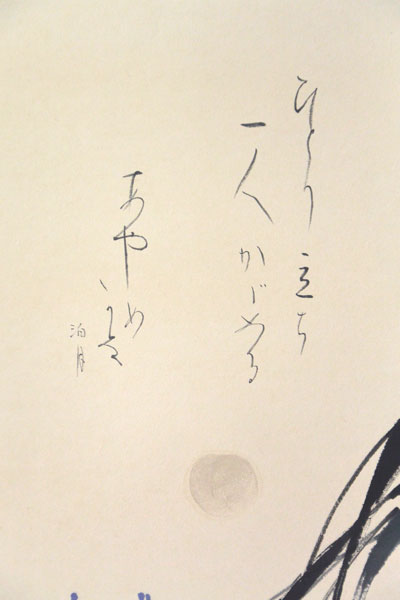 ひとり立ち
一人かゞめる
あやめかな
泊月